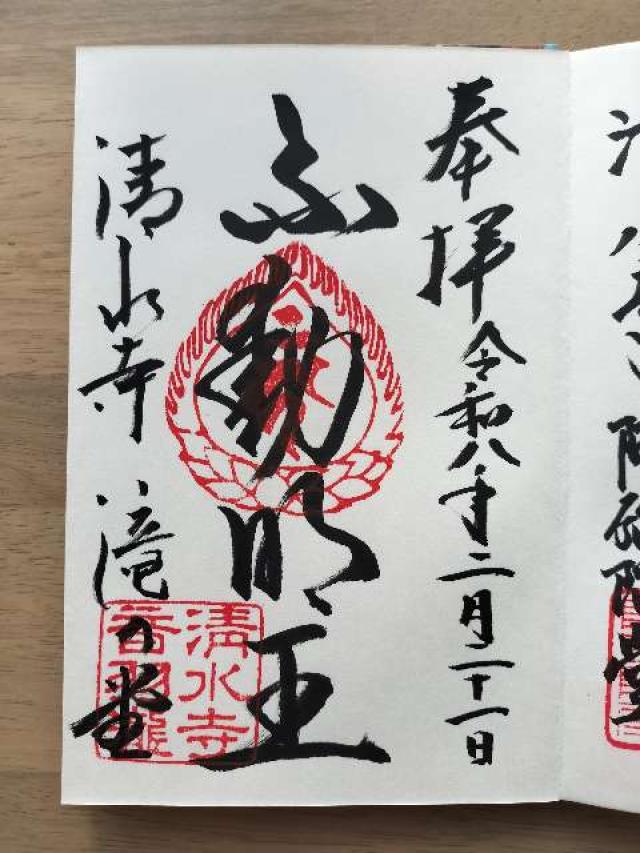 奉拝 令和八年二月二十一日
不動明王
清水寺 滝の堂
清水寺
音羽瀧
阿弥陀堂